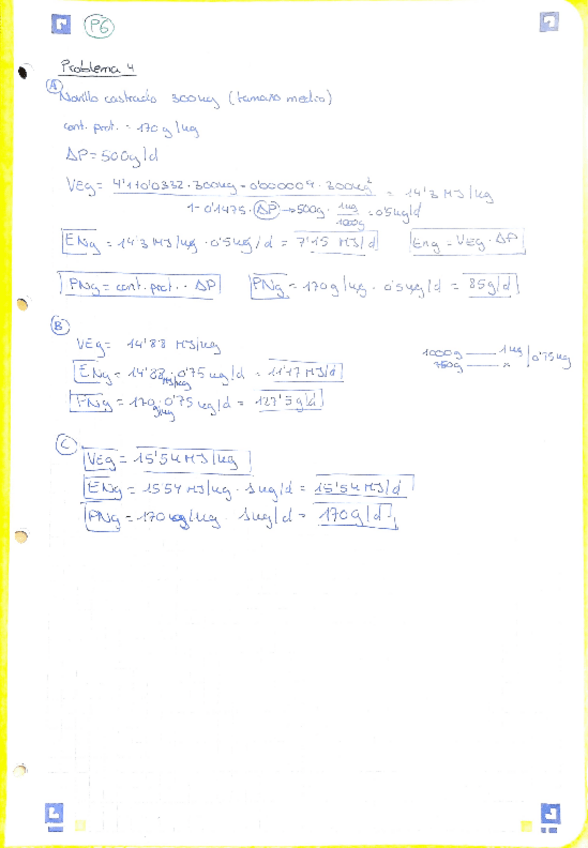 P6
Problema 4
A
Novillo castrado 300kg (tamaño medio)
cont. prot. = 170 g/kg
ΔP = 500g/d
VEg = 4'1+0'0332·300kg-0'000009·300kg² = 14'3 MJ/kg
1-0'1475·ΔP → 500g · 1kg / 1000g = 0'5kg/d
ENg = 14'3 MJ/kg · 0'5kg/d = 7'15 MJ/d Eng = VEg · ΔP
PNg = cont. prot. · ΔP PNg = 170g/kg · 0'5kg/d = 85g/d
B
VEg = 14'88 MJ/kg
1000g — 1kg
750g — x 0'75kg
ENg = 14'88 MJ/kg · 0'75 kg/d = 11'17 MJ/d
PNg = 170 g/kg · 0'75 kg/d = 127'5 g/d
C
VEg = 15'54 MJ/kg
ENg = 15'54 MJ/kg · 1kg/d = 15'54 MJ/d
PNg = 170 g/kg · 1kg/d = 170g/d